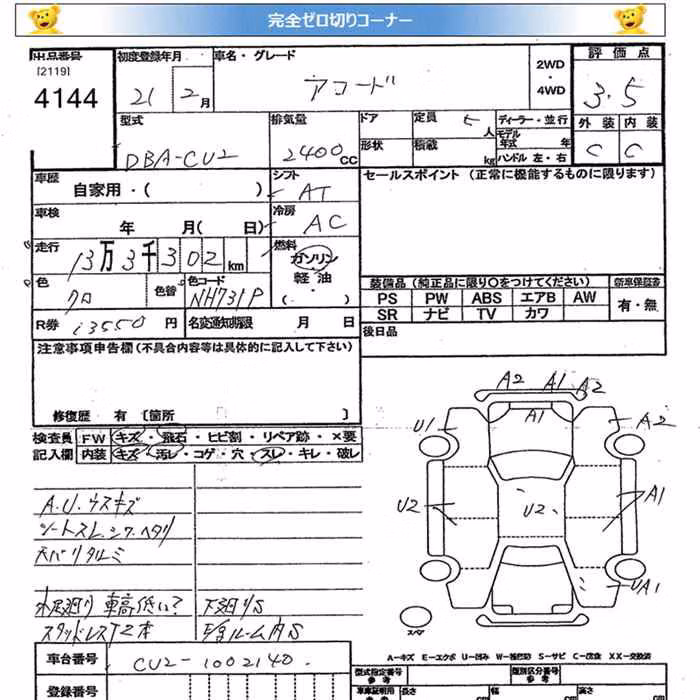 完全ゼロ切りコーナー
出品番号 初度登録年月 車名・グレード 2WD・4WD 評価点
[2119]
4144 21 2月 アコード 3.5
型式 排気量 ドア 定員 5人 ディーラー・並行 外装 内装
モデル年式 年
DBA-CU2 2400CC 形状 積載 kg ハンドル 左・右 C C
車歴 シフト セールスポイント (正常に機能するものに限ります)
自家用・( ) AT
車検 冷房
年 月( 日) AC
走行 燃料
13万3千302km ガソリン
軽油
・( )
色 色替 色コード 装備品(純正品に限り○をつけてください) 新車保証書
クロ NH731P PS PW ABS エアB AW 有・無
SR ナビ TV カワ
R券 13550円 名変通知期限 月 日 後日品
注意事項申告欄(不具合内容等は具体的に記入して下さい)
修復歴 有 [箇所 ]
検査員 FW キズ・飛石・ヒビ割・リペア跡・×要
記入欄 内装 キズ・汚レ・コゲ・穴・スレ・キレ・破レ
A.U.ウスキズ
シートスレ、シワ、ヘタリ
天バリタルミ
水尾廻り 車高低い? 下廻りS
スタッドレスT2本 ルーム内S
車台番号 CU2-1002140.
登録番号
A2 A1 A2
U1 A1 A2
U2 U2 A1
UA1
スペア
A-キズ E-エクボ U-凹み W-補修跡 S-サビ C-腐食 XX-交換済
型式指定番号 参考 類別区分番号 参考
車庫証明用 参考 長さ 幅 高さ
cm cm cm